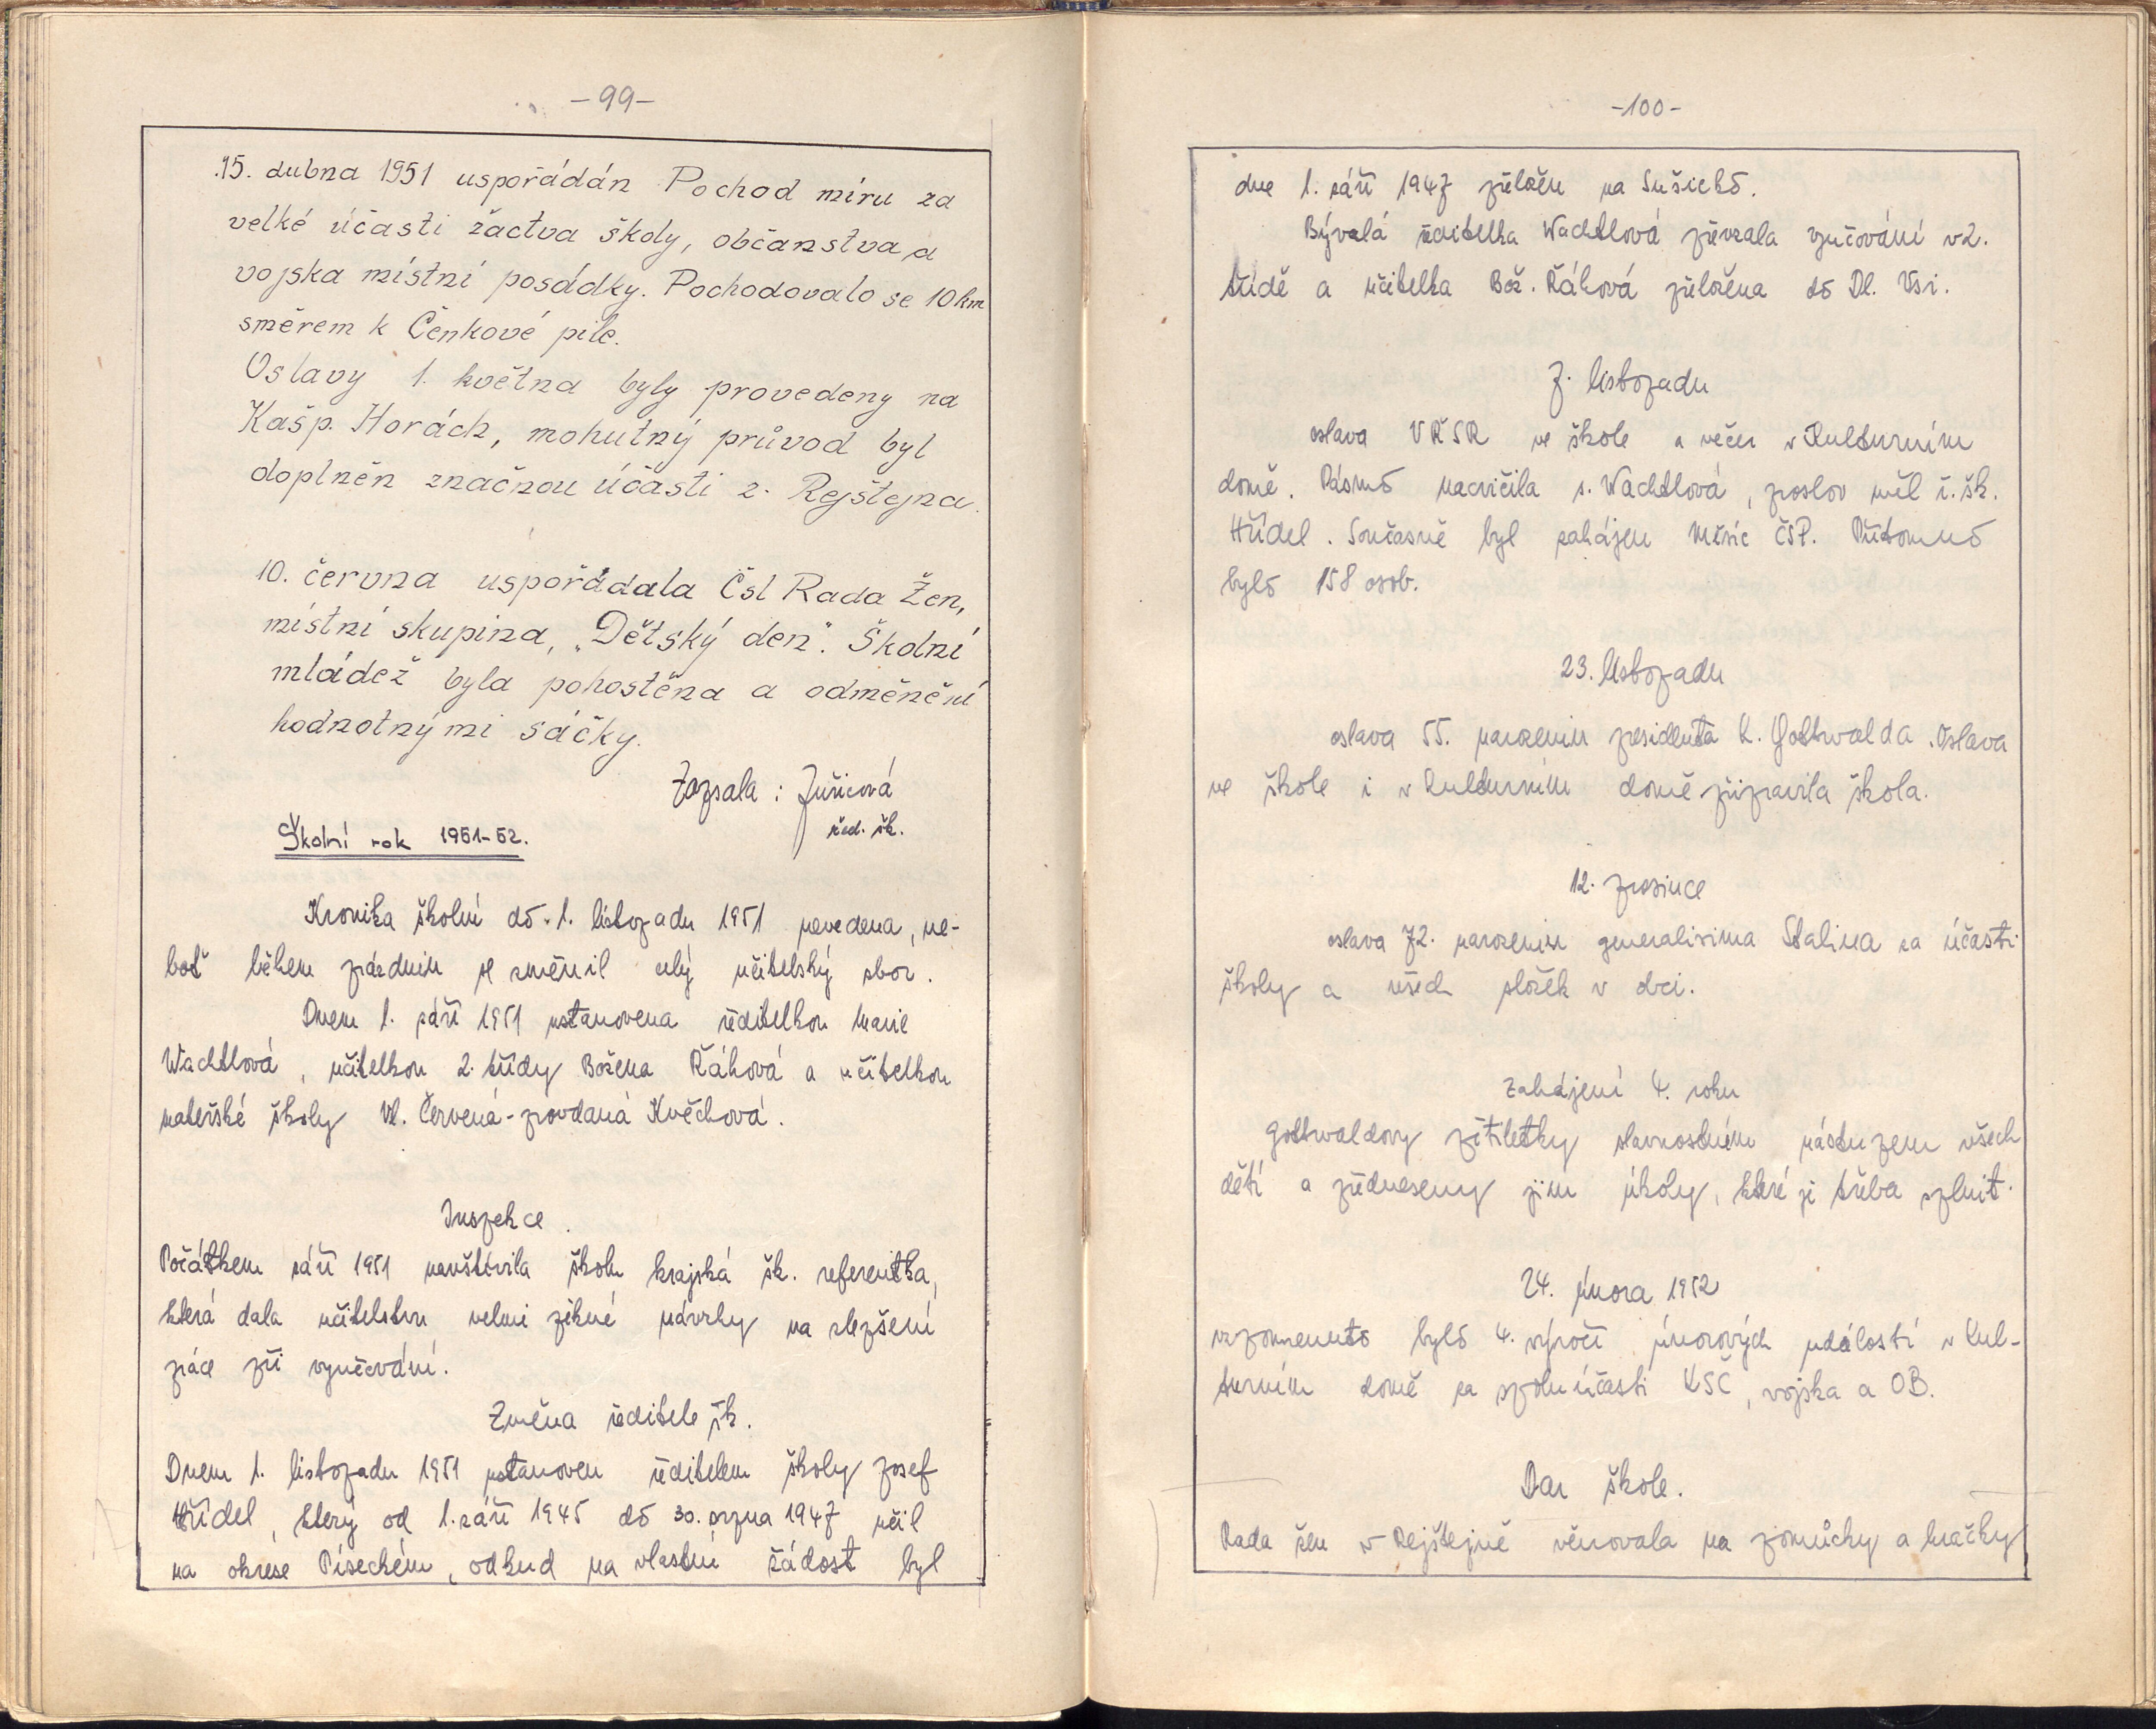 -99-
15. dubna 1951 uspořádán Pochod míru za
velké účasti žactva školy, občanstva a
vojska místní posádky. Pochodovalo se 10 km
směrem k Čenkové pile.
Oslavy 1. května byly provedeny na
Kašp. Horách, mohutný průvod byl
doplněn značnou účastí z. Rejštejna.
10. června uspořádala Čsl Rada Žen,
místní skupina, „Dětský den". Školní
mládež byla pohostěna a odměněni
hodnotnými sáčky.
Zapsala: Juřicová
řed. šk.
Školní rok 1951-52.
Kronika školní do 1. listopadu 1951 nevedena, ne-
boť během prázdnin se změnil celý učitelský sbor.
Dnem 1. září 1951 ustanovena ředitelkou Marie
Wachtlová, učitelkou 2. třídy Božena Řáhová a učitelkou
mateřské školy Vl. Červená-provdaná Květchová.
Inspekce.
Počátkem září 1951 navštívila školu krajská šk. referentka,
která dala učitelstvu velmi pěkné návrhy na zlepšení
práce při vyučování.
Změna ředitele šk.
Dnem 1. listopadu 1951 ustanoven ředitelem školy Josef
Hřídel, který od 1. září 1945 do 30. srpna 1947 učil
na okrese Píseckém, odkud na vlastní žádost byl
-100-
dne 1. září 1947 přeložen na Sušicko.
Bývalá ředitelka Wachtlová převzala vyučování v 2.
třídě a učitelka Bož. Řáhová přeložena do Dl. Vsi.
7. listopadu
oslava VŘSR ve škole a večer v Kulturním
domě. Pásmo nacvičila s. Wachtlová, proslov měl ř. šk.
Hřídel. Současně byl zahájen Měsíc ČSP. Přítomno
bylo 158 osob.
23. listopadu
oslava 55. narozenin presidenta K. Gottwalda. Oslava
ve škole i v Kulturním domě připravila škola.
12. prosince
oslava 72. narozenin generalisima Stalina za účasti
školy a všech složek v obci.
Zahájení 4. roku
Gottwaldovy pětiletky slavnostním nástupem všech
dětí a předneseny jim úkoly, které je třeba splnit.
24. února 1952
vzpomenuto bylo 4. výročí únorových událostí v Kul-
turním domě za spoluúčasti KSČ, vojska a OB.
Dar škole.
Rada žen v Rejštejně věnovala na pomůcky a hračky